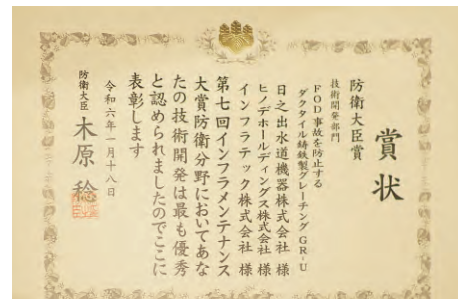 賞状
防衛大臣賞
技術開発部門
FOD事故を防止する
ダクタイル鋳鉄製グレーチングGR-U
日之出水道機器株式会社 様
ヒノデホールディングス株式会社 様
インフラテック株式会社 様
第七回インフラメンテナンス
大賞防衛分野においてあな
たの技術開発は最も優秀
と認められましたのでここに
表彰します
令和六年一月十八日
防衛大臣 木原稔